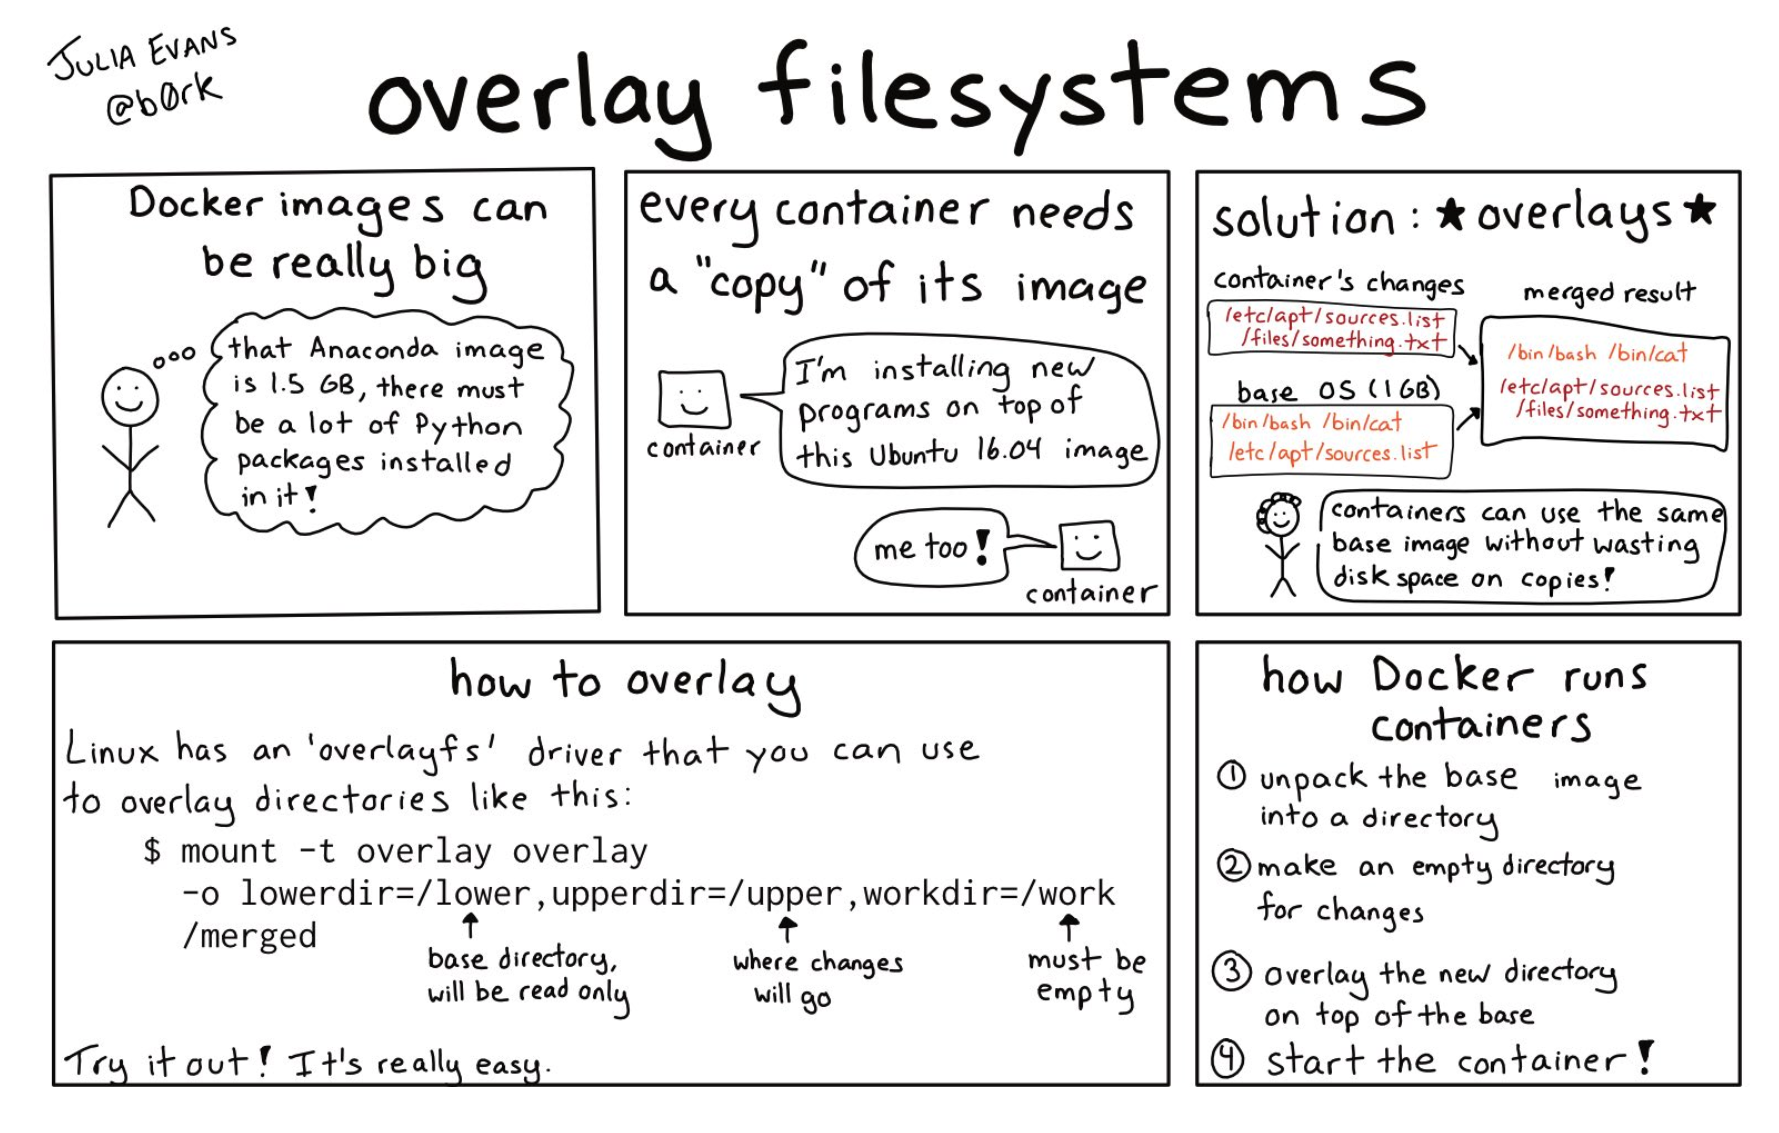 JULIA EVANS
@b0rk
overlay filesystems
Docker images can
be really big
that Anaconda image
is 1.5 GB, there must
be a lot of Python
packages installed
in it!
every container needs
a "copy" of its image
I'm installing new
programs on top of
this Ubuntu 16.04 image
container
me too!
container
solution: ★ overlays ★
container's changes
/etc/apt/sources.list
/files/something.txt
base OS (1 GB)
/bin/bash /bin/cat
/etc/apt/sources.list
merged result
/bin/bash /bin/cat
/etc/apt/sources.list
/files/something.txt
containers can use the same
base image without wasting
disk space on copies!
how to overlay
Linux has an 'overlayfs' driver that you can use
to overlay directories like this:
$ mount -t overlay overlay
-o lowerdir=/lower,upperdir=/upper,workdir=/work
/merged
base directory,
will be read only
where changes
will go
must be
empty
Try it out! It's really easy.
how Docker runs
containers
① unpack the base image
into a directory
② make an empty directory
for changes
③ overlay the new directory
on top of the base
④ start the container!